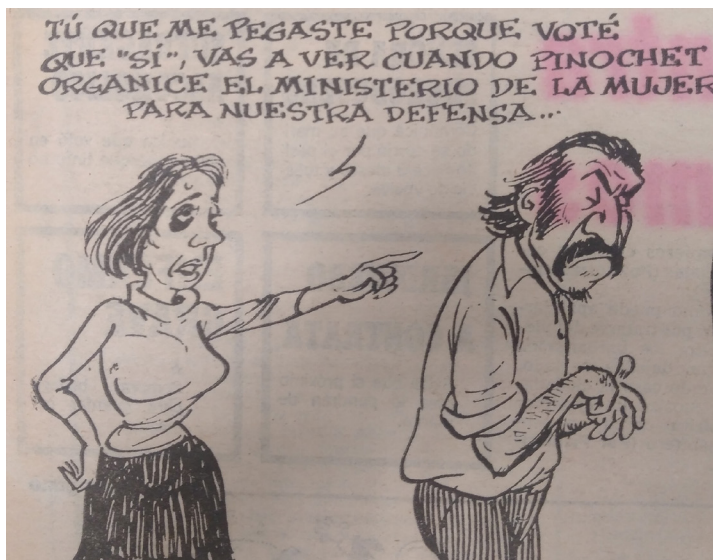 TÚ QUE ME PEGASTE PORQUE VOTÉ
QUE "SÍ", VAS A VER CUANDO PINOCHET
ORGANICE EL MINISTERIO DE LA MUJER
PARA NUESTRA DEFENSA...